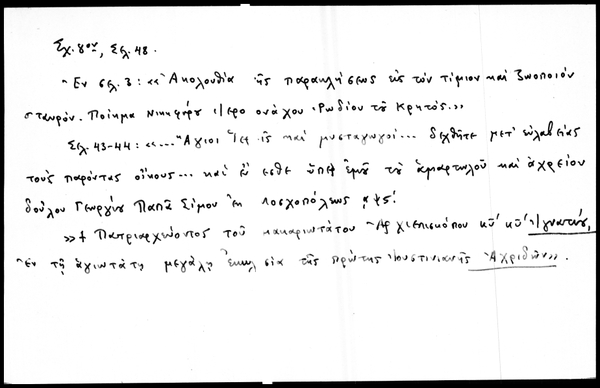 Σχ. 8ον, Σελ. 48.
Ἐν σελ. 3: «Ἀκολουθία τῆς παρακλήσεως εἰς τὸν τίμιον καὶ ζωοποιὸν
σταυρόν. Ποίημα Νικηφόρου Ἱερομονάχου Ῥωδίου τοῦ Κρητός.»
Σελ. 43-44: «...Ἅγιοι καὶ μυσταγωγοί... δεχθῆτε μετ' εὐλαβείας
τοὺς παρόντας οἴκους... καὶ ὑπὲρ ἐμοῦ τοῦ ἁμαρτωλοῦ καὶ ἀχρείου
δούλου Γεωργίου Παπᾶ Σίμου ἐκ Μοσχοπόλεως
»+ Πατριαρχεύοντος τοῦ μακαριωτάτου Ἀρχιεπισκόπου κυ' κυ' Ἰγνατίου,
Ἐν τῇ ἁγιωτάτῃ μεγάλῃ ἐκκλησίᾳ τῆς πρώτης Ἰουστινιανῆς Ἀχριδῶν».